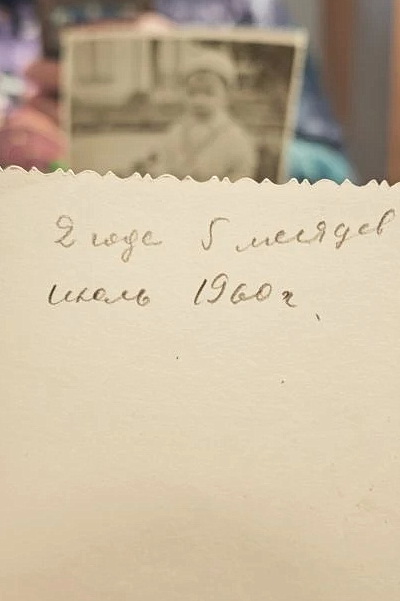 2 года 5 месяцев
июль 1960 г.